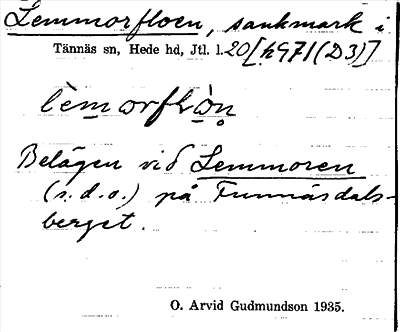 Lemmorfloen, sankmark i
Tännäs sn, Hede hd, Jtl. l. 20 [h971(D3)]
lèm̲orflòn̥
Belägen vid Lemmoren
(s.d.o.) på Funnäsdals-
berget.
O. Arvid Gudmundson 1935.